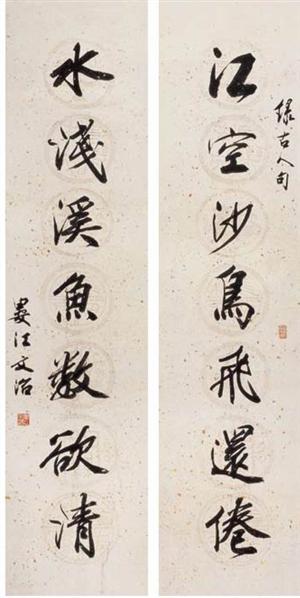 錄古人句
江空沙鳥飛還倦
水淺溪魚數欲清
婁江文治